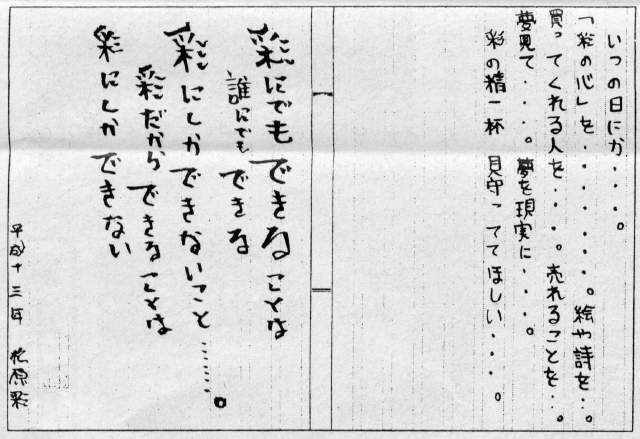 いつの日にか・・・。
「彩の心」を・・・・・・。絵や詩を・・。
買ってくれる人を・・・。売れることを・・。
夢見て・・・・。夢を現実に・・・・。
彩の精一杯 見守っててほしい・・・・。
彩にでもできることは
誰にでもできる
彩にしかできないこと……。
彩だからできることは
彩にしかできない
平成十三年 松原彩